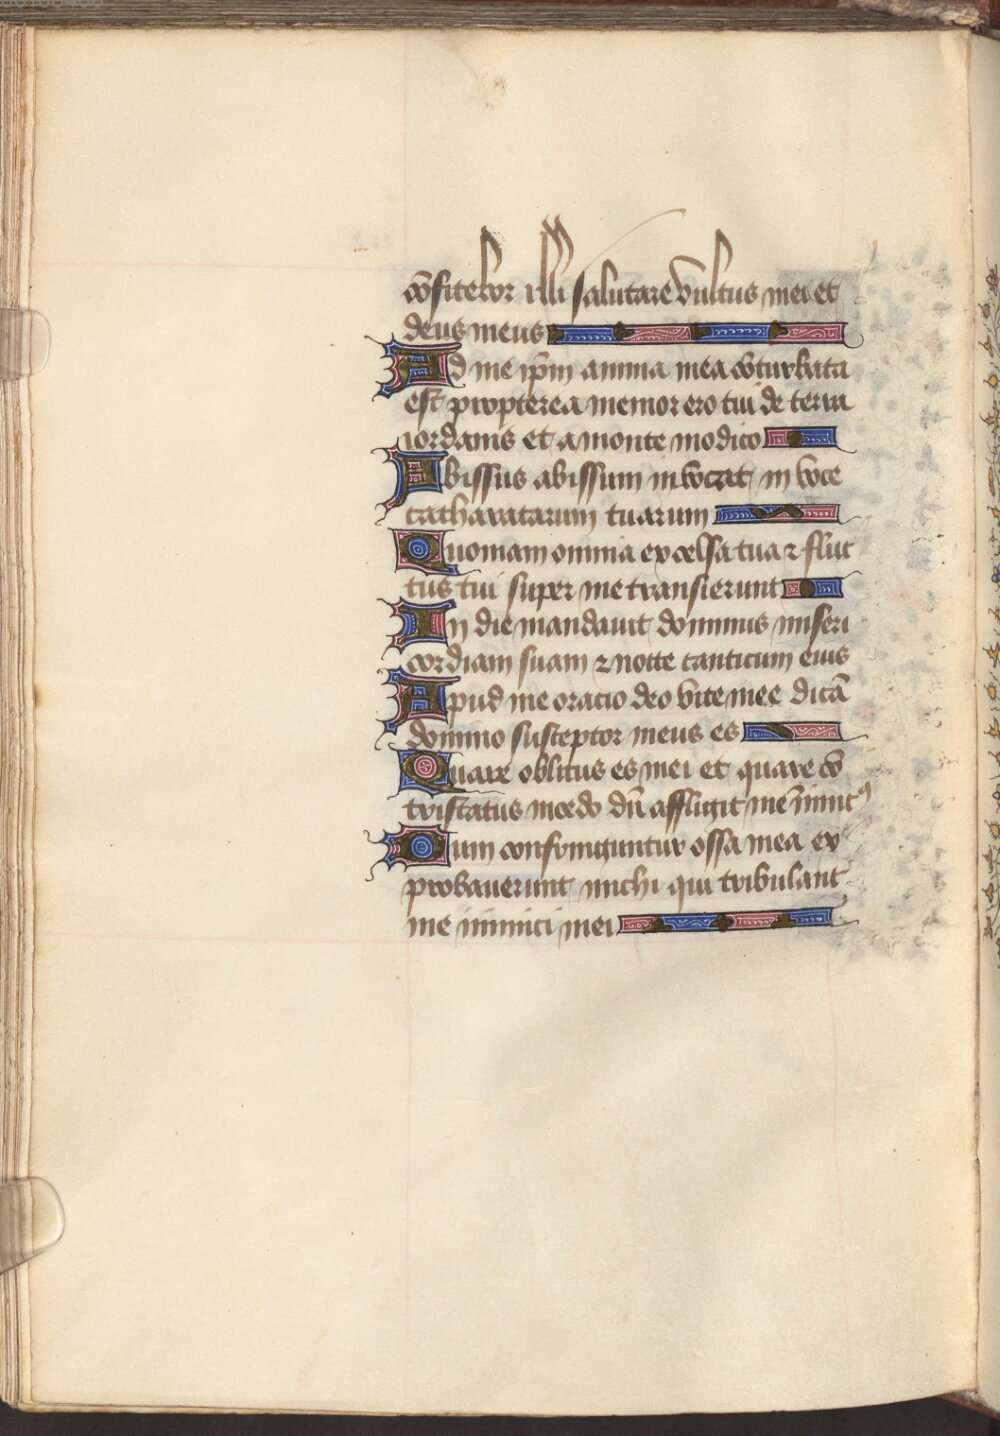 cōfitebor illi salutare vultus mei et
deus meus
Ad me ip̄m anima mea cōturbata
est propterea memor ero tui de terra
iordanis et a monte modico
Abissus abissum invocat in voce
catharatarum tuarum
Quoniam omnia excelsa tua ⁊ fluc
tus tui super me transierunt
In die mandavit dominus miseri
cordiam suam ⁊ nocte canticum eius
Apud me oracio deo vite mee dicā
domino susceptor meus es
Quare oblitus es mei et quare cō
tristatus incedo dū affligit me īnimicꝰ
Dum confringuntur ossa mea ex
probaverunt michi qui tribulant
me inimici mei